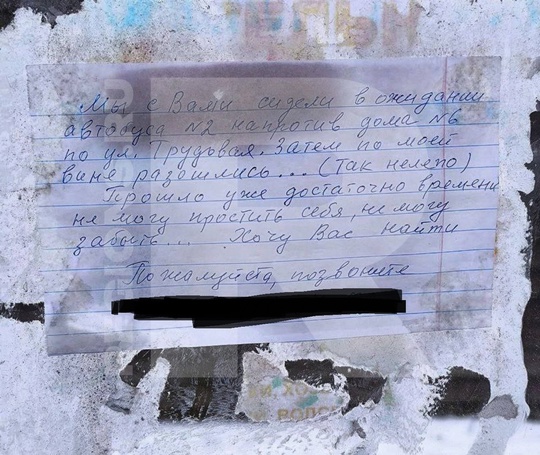 Мы с Вами сидели в ожидании
автобуса №2 напротив дома №6
по ул. Трудовая. Затем по моей
вине разошлись... (так нелепо)
Прошло уже достаточно времени
не могу простить себя, не могу
забыть... Хочу Вас найти
Пожалуйста, позвоните